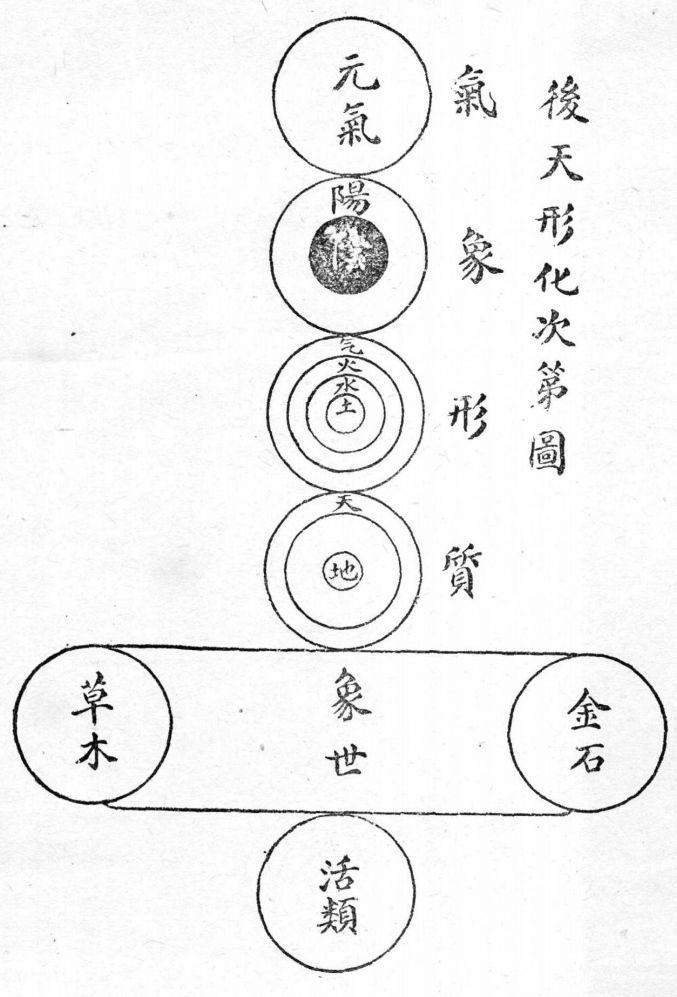 後天形化次第圖
氣
象
形
質
元氣
陽
陰
气
火
水
土
天
地
草木
象世
金石
活類